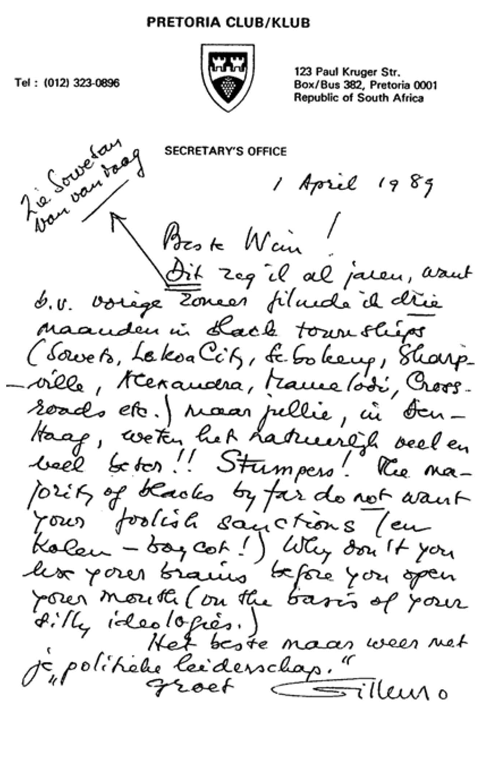 PRETORIA CLUB/KLUB
Tel : (012) 323-0896
123 Paul Kruger Str.
Box/Bus 382, Pretoria 0001
Republic of South Africa
SECRETARY'S OFFICE
Zie Sowetan
van vandaag
1 April 1989
Beste Wim!
Dit zeg ik al jaren, want
b.v. vorige zomer filmde ik drie
maanden in black townships
(Soweto, Lekoa City, Sebokeng, Sharp-
ville, Alexandra, Mamelodi, Cross-
roads etc.) maar jullie, in Den-
Haag, weten het natuurlijk veel en
veel beter!! Stumpers! The ma-
jority of blacks by far do not want
your foolish sanctions (en
Kolen-boycot!) Why don't you
use your brains before you open
your mouth (on the basis of your
silly ideologies.)
Het beste maar weer met
je „politieke leiderschap."
groet